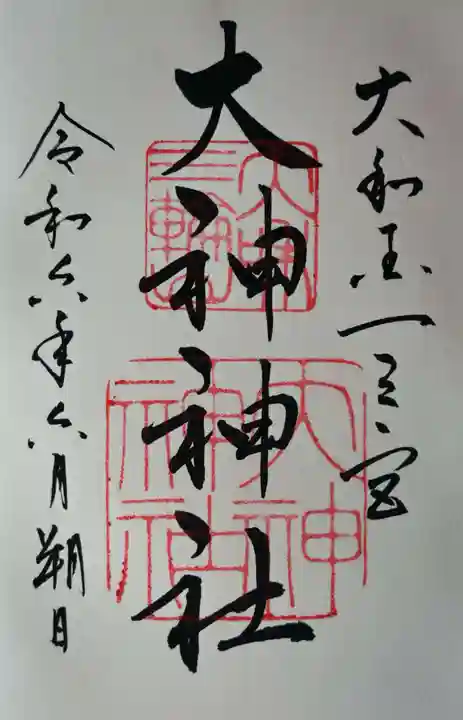 大和国一之宮
大神神社
令和六年六月朔日
大神神社